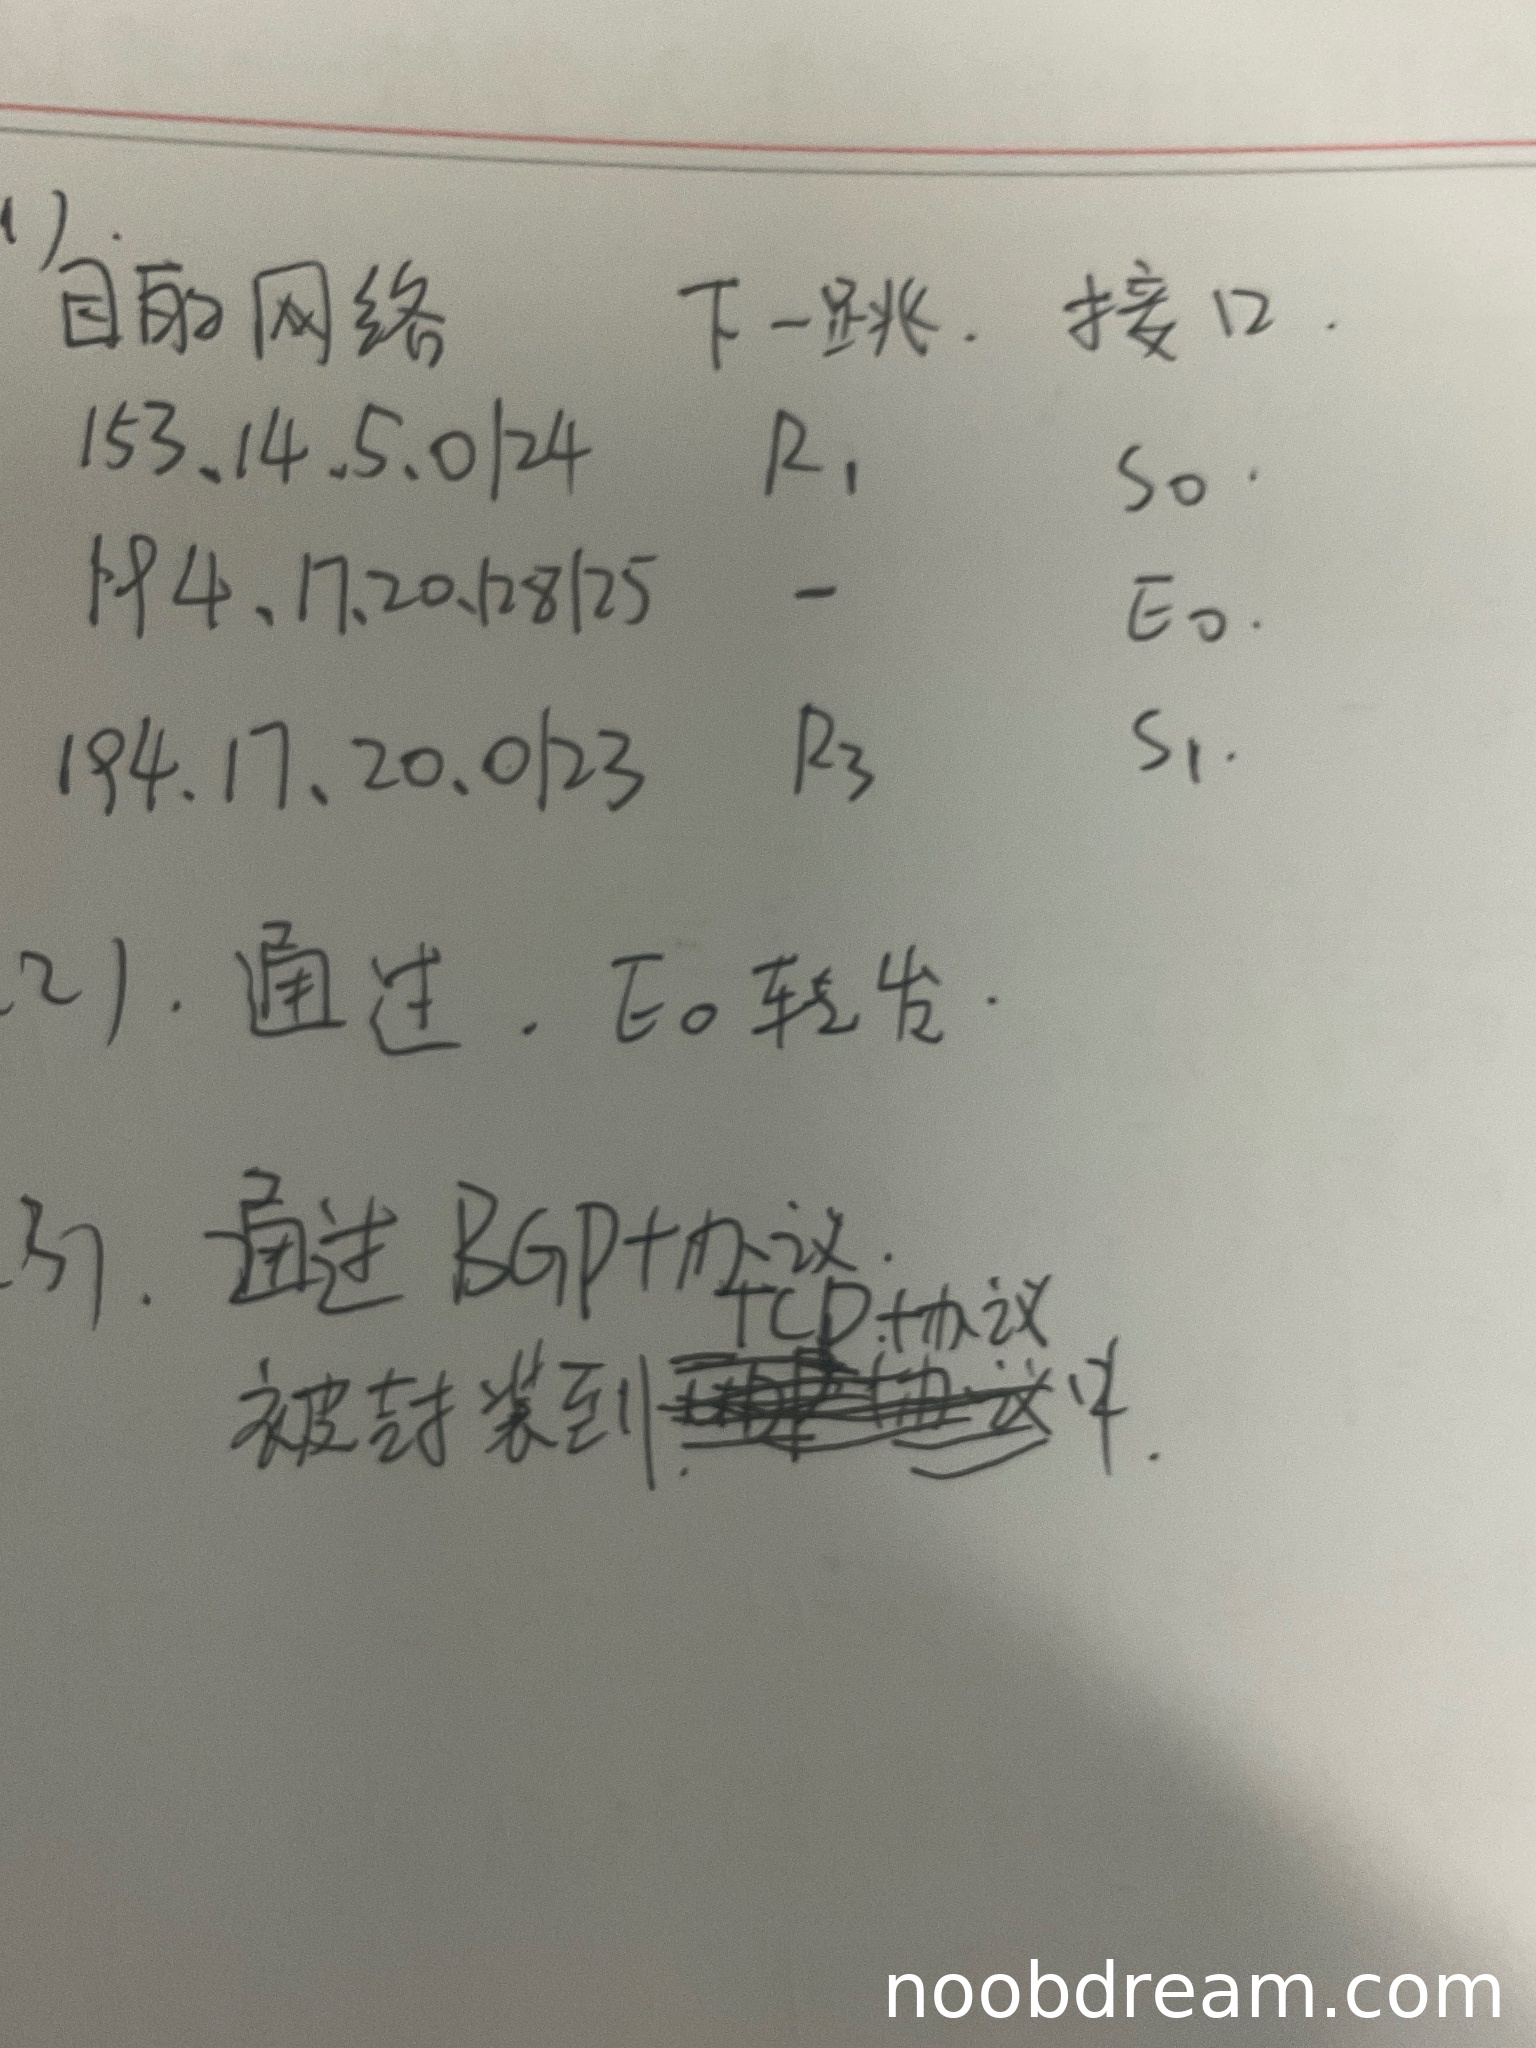 1).
目的网络 下一跳. 接口.
153.14.5.0/24 R1 S0.
194.17.20.128/25 - E0.
194.17.20.0/23 R3 S1.
(2). 通过. E0转发.
(3). 通过BGP协议.
TCP协议
被封装到 中.
noobdream.com